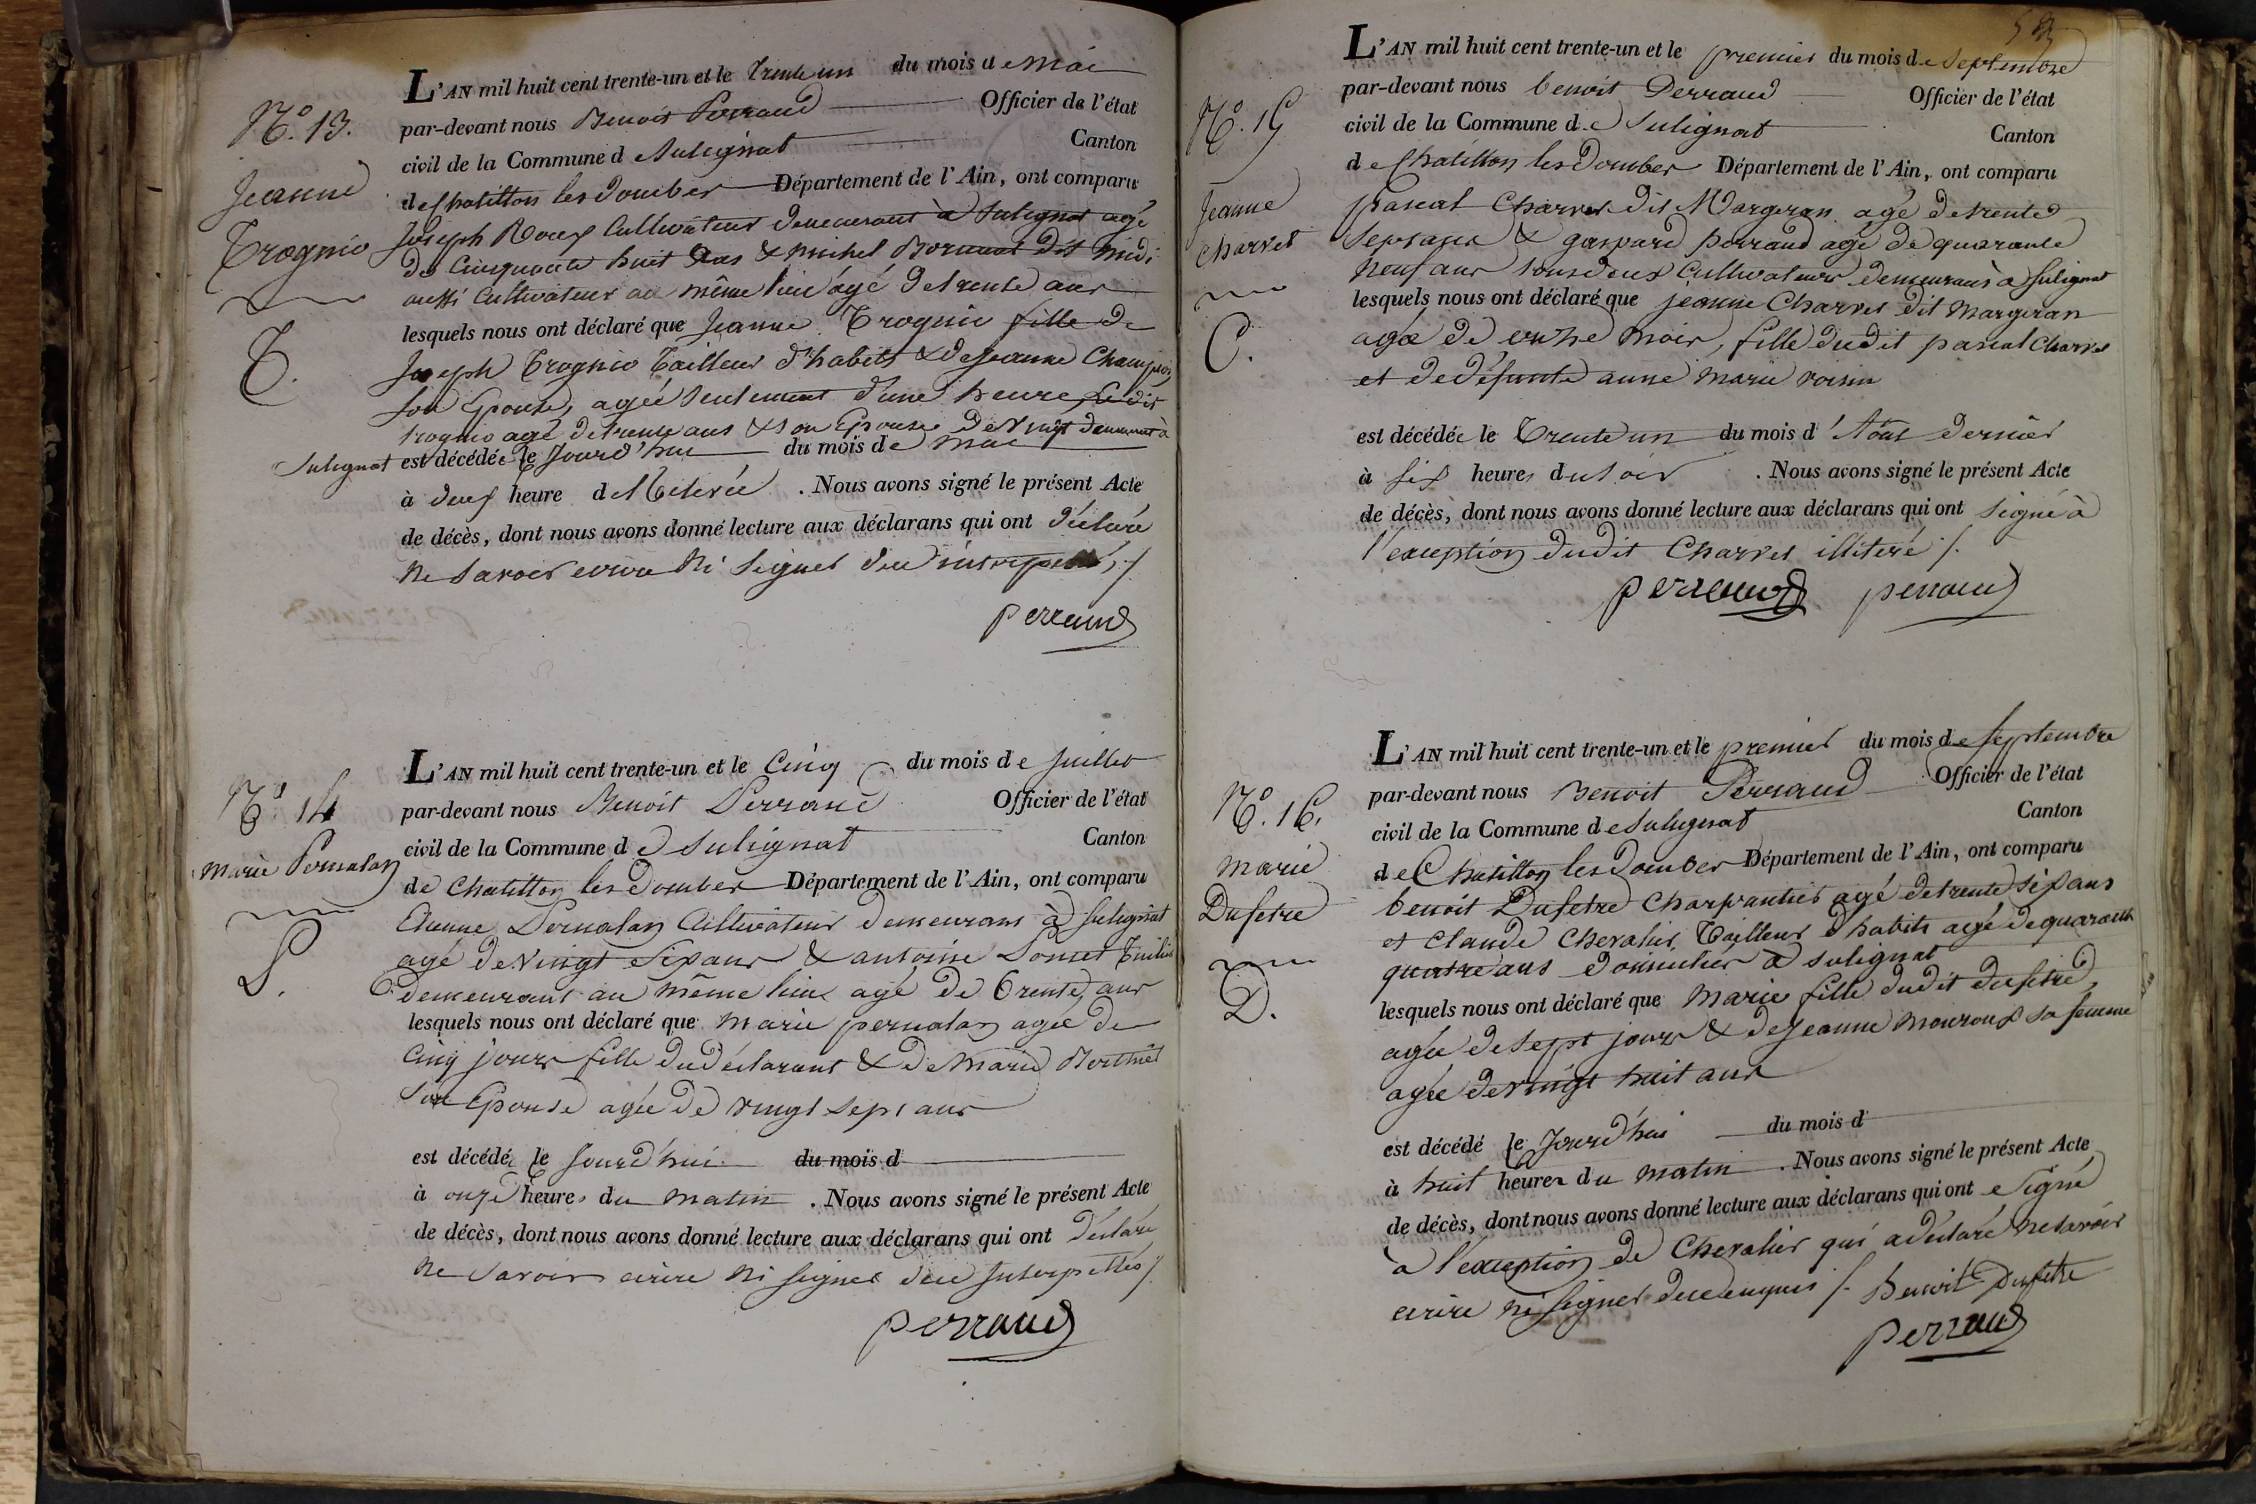 N.º 13.
Jeanne
Trognio
T.
L'AN mil huit cent trente-un et le trente un du mois de Mai
par-devant nous Benoit Perraud Officier de l'état
civil de la Commune d e Sulignat Canton
de Chatillon les Dombes Département de l'Ain, ont comparu
Joseph Roux Cultivateur demeurant à Sulignat agé
de Cinquante huit ans & Michel dit midi
aussi Cultivateur au même lieu âgé de trente ans
lesquels nous ont déclaré que Jeanne Trognio fille de
Joseph Trognio Tailleur d'habits & de Jeanne Champion
son Epouse, agée seulement d'une heure, Le dit
trognio agé de trente ans & son Epouse de vingt demeurant à
Sulignat est décédée le Jourd'hui du mois de Mai
à deux heure de l . Nous avons signé le présent Acte
de décès, dont nous avons donné lecture aux déclarans qui ont déclaré
ne savoir ecrire ni signer
Perraud
N.º 14
Marie Pernalon
P.
L'AN mil huit cent trente-un et le Cinq du mois de Juillet
par-devant nous Benoit Perraud Officier de l'état
civil de la Commune d e Sulignat Canton
de Chatillon les Dombes Département de l'Ain, ont comparu
Etienne Pernalon Cultivateur demeurans à Sulignat
agé de vingt six ans & antoine
demeurant au même lieu agé de trente ans
lesquels nous ont déclaré que marie pernalon agée de
Cinq jours fille du déclarant & de Marie
son Epouse agée de vingt sept ans
est décédée le Jourd'hui du mois d
à onze heures du matin . Nous avons signé le présent Acte
de décès, dont nous avons donné lecture aux déclarans qui ont déclaré
ne savoir ecrire ni signer Interpellés /.
Perraud
N.º 15
Jeanne
charvet
C.
L'AN mil huit cent trente-un et le premier du mois de Septembre
par-devant nous benoit Perraud Officier de l'état
civil de la Commune d e Sulignat Canton
de Chatillon les Dombes Département de l'Ain, ont comparu
pascal Charvet dit Margeran agé de trente
sept ans & gaspard perraud agé de quarante
neuf ans tous deux Cultivateurs demeurans à Sulignat
lesquels nous ont déclaré que jeanne Charvet dit margeran
agée de onze mois, fille dudit pascal Charvet
et de défunte anne marie voisin
est décédée le Trente un du mois d'Août dernier
à six heures du soir . Nous avons signé le présent Acte
de décès, dont nous avons donné lecture aux déclarans qui ont signé à
l'exception dudit Charvet illiteré /.
perraud perraud
N.º 16.
marie
Dufetre
D.
L'AN mil huit cent trente-un et le premier du mois de Septembre
par-devant nous Benoit Perraud Officier de l'état
civil de la Commune d e Sulignat Canton
de Chatillon les Dombes Département de l'Ain, ont comparu
benoit Dufetre Charpentier agé de trente six ans
et claude chevalier Tailleur d'habits agé de quarante
quatre ans domicilier à Sulignat
lesquels nous ont déclaré que Marie fille dudit dufetre
agée de sept jours & de Jeanne Monroux sa femme
agée de vingt huit ans
est décédé le Jourd'hui du mois d
à huit heures du matin . Nous avons signé le présent Acte
de décès, dont nous avons donné lecture aux déclarans qui ont Signé
à l'exception de Chevalier qui a déclaré ne savoir
ecrire ni signer de ce enquis /. Benoit Dufetre
Perraud